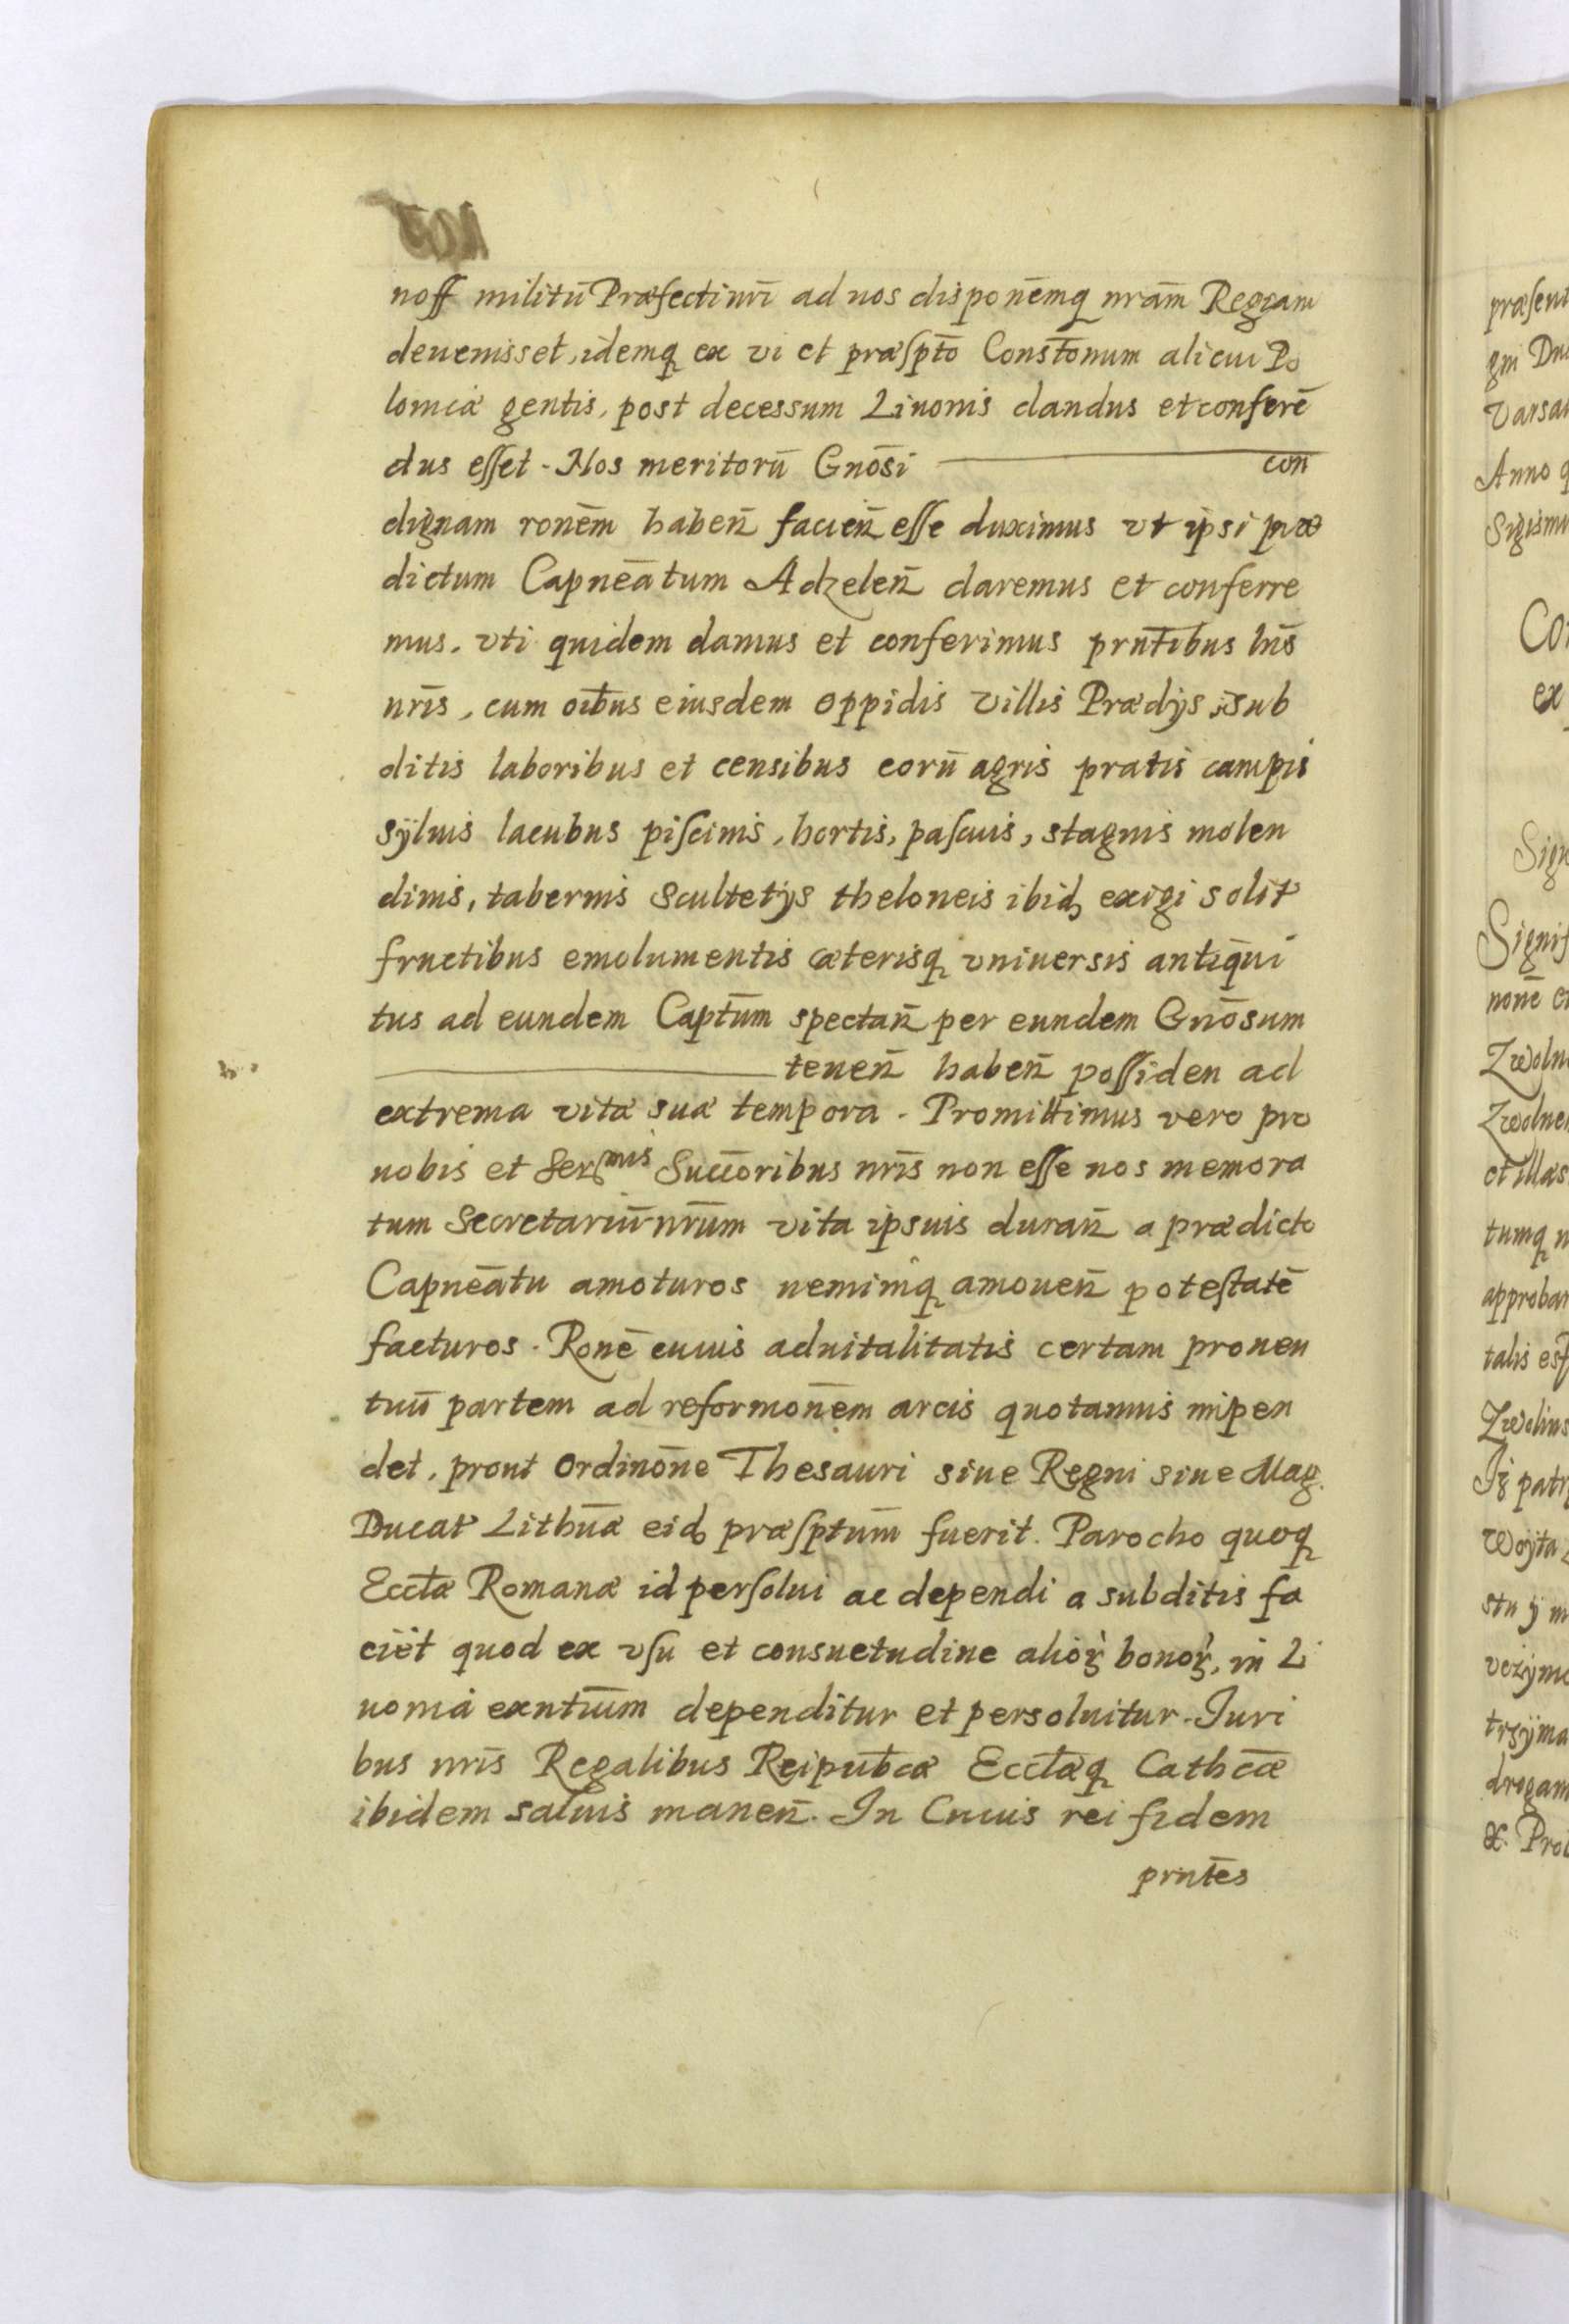 noſſ militū Præfectiuri ad nos disponēmq nrām Regiam
deuenisset, idemq ex vi et præſptō Constōnum alicui Po
loniæ gentis, post decessum Liuonis dandus et conferē
dus eſſet. Nos meritorū Gnōsi con
dignam ronēm habeñ facieñ eſſe duximus vt ipsi præ
dictum Capneātum Adzeleñ daremus et conferre
mus. vti quidem damus et conferimus prntībus lrīs
nrīs, cum oībus eiusdem oppidis villis Prædijs sub
ditis laboribus et censibus eorū agris pratis campis
sÿluis lacubus piſcinis, hortis, paſcuis, stagnis molen
dinis, tabernis Scultetijs theloneis ibiđ exigi solit
fructibus emolumentis cæterisq vniuersis antiqui
tus ad eundem Captūm spectañ per eundem Gnōsum
teneñ habeñ poſſiden ad
extrema vitæ suæ tempora. Promittimus vero pro
nobis et Serᵐⁱˢ Succōribus nrīs non eſſe nos memora
tum Secretariū nrūm vita ipsius durañ a prædicto
Capneātu amoturos neminiq amoueñ poteſtatē
facturos. Ronē cuius aduitalitatis certam prouen
tuū partem ad reformonēm arcis quotannis impen
det, prout Ordinōne Thesauri siue Regni siue Mag.
Ducat Lithūæ eiđ præſptūm fuerit. Parocho quoq
Ecctæ Romanæ id perſolui ac dependi a subditis fa
ciet quod ex vſu et consuetudine alioꝝ bonoꝝ, in Li
uonia exntīum dependitur et persoluitur. Iuri
bus nrīs Regalibus Reipubcæ Ecctæq Cathcæ
ibidem saluis maneñ. In Cuius rei fidem
prntēs